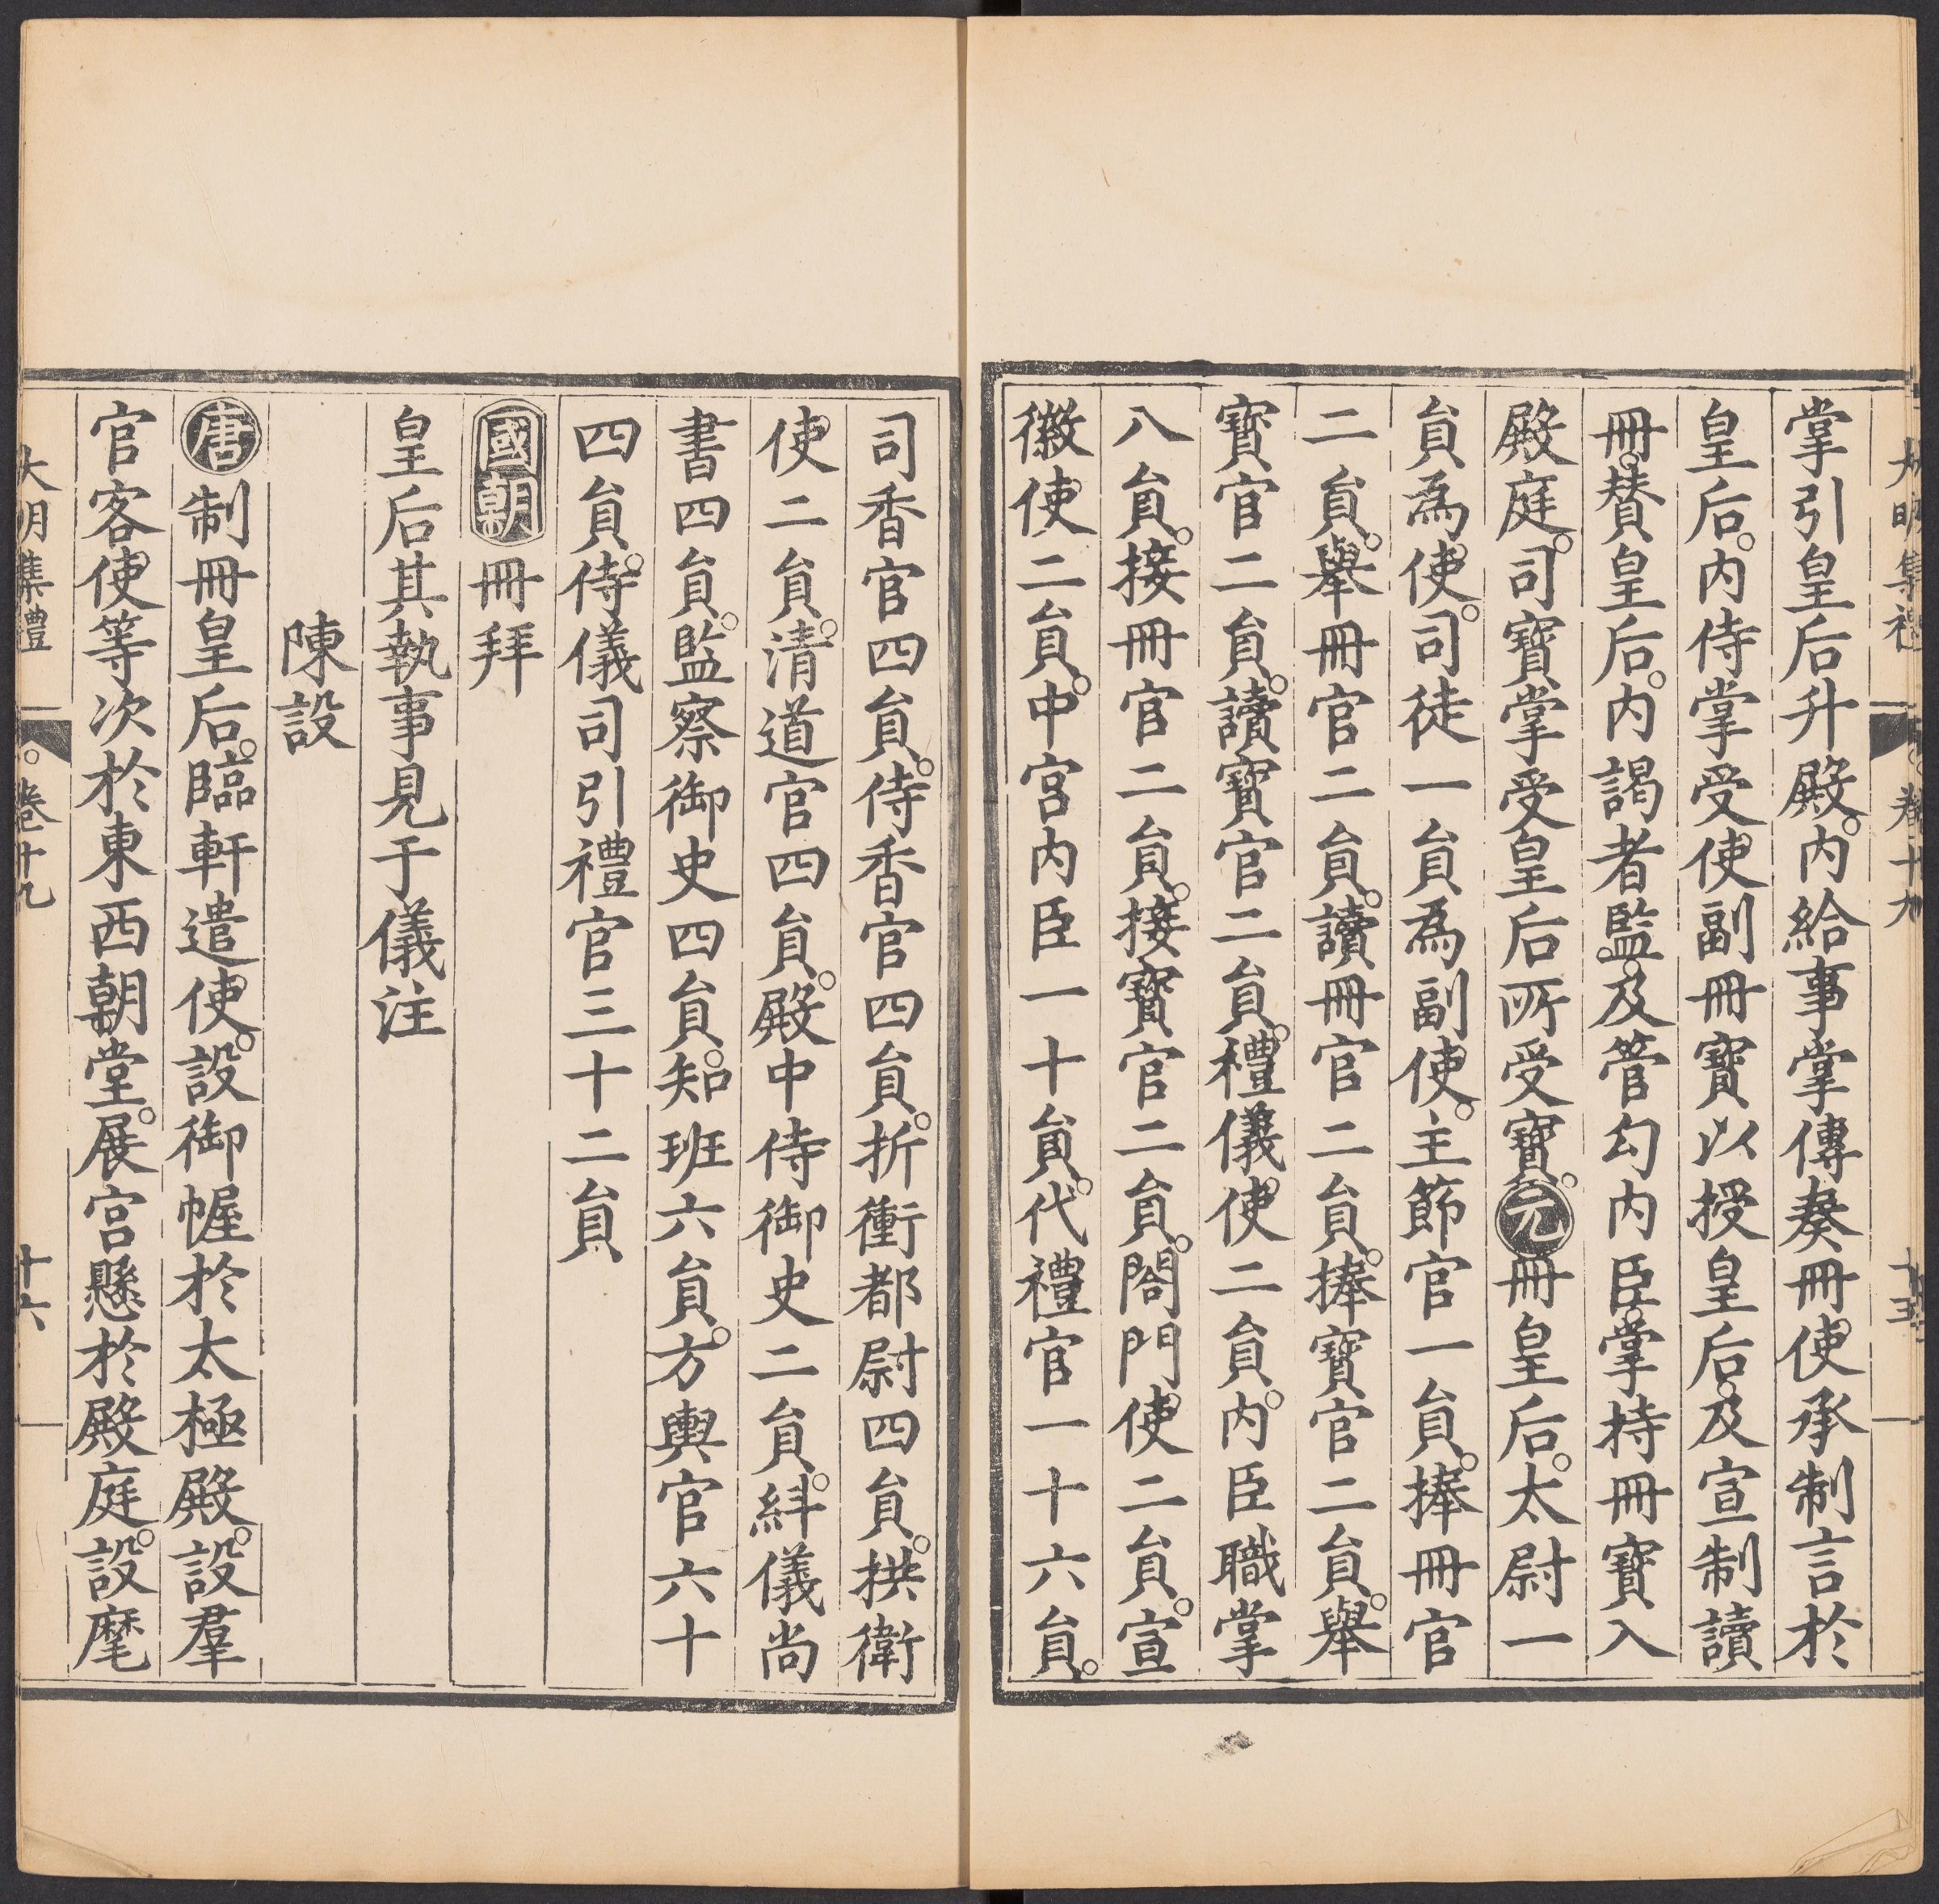 大明集禮 卷十九 十五
掌引皇后升殿。内給事掌傳奏冊使承制言於
皇后。内侍掌受使副冊寶以授皇后。及宣制讀
冊。賛皇后。内謁者監。及管勾内臣。掌持冊寶入
殿庭。司寶掌受皇后所受寶。元冊皇后。太尉一
貟為使。司徒一貟為副使。主節官一貟。捧冊官
二貟。舉冊官二貟。讀冊官二貟。捧寶官二貟。舉
寶官二貟。讀寶官二貟。禮儀使二貟。内臣職掌
八貟。接冊官二貟。接寶官二貟。閤門使二貟。宣
徽使二貟。中宮内臣一十貟。代禮官一十六貟。
司香官四貟。侍香官四貟。折衝都尉四貟。拱衛
使二貟。清道官四貟。殿中侍御史二貟。糾儀尚
書四貟。監察御史四貟。知班六貟。方輿官六十
四貟。侍儀司引禮官三十二貟
國朝冊拜
皇后其執事見于儀注
陳設
唐制冊皇后。臨軒遣使。設御幄於太極殿。設羣
官客使等次於東西朝堂。展宮懸於殿庭。設麾
大明集禮 卷十九 十六